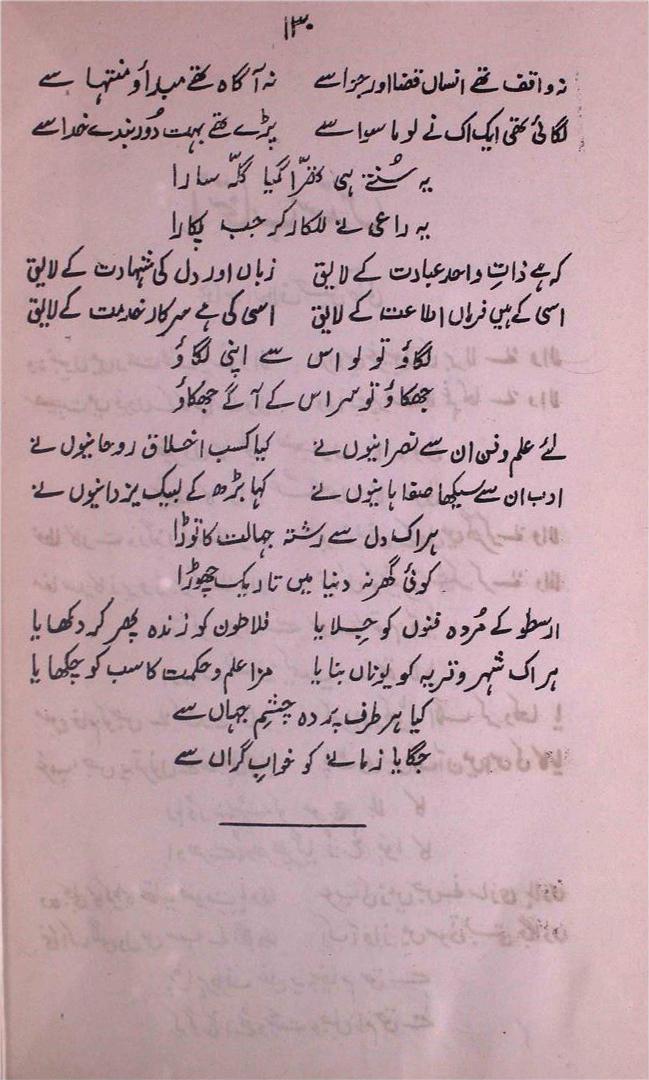 ۱۳۰
نہ واقف تھے انساں قضا اور جزا سے نہ آگاہ تھے مبدأ و منتہا سے
لگائی تھی ایک اک نے لو ماسوا سے پڑے تھے بہت دُور بندے خدا سے
یہ سُنتے ہی تھرّا گیا گلّہ سارا
یہ راعی نے للکار کر جب پکارا
کہ ہے ذاتِ واحد عبادت کے لایق زباں اور دل کی شہادت کے لایق
اسی کے ہیں فرماں اطاعت کے لایق اسی کی ہے سرکار خدمت کے لایق
لگاؤ تو لو اس سے اپنی لگاؤ
جھکاؤ تو سر اس کے آگے جھکاؤ
لئے علم و فن ان سے نصرانیوں نے کیا کسب اخلاق روحانیوں نے
ادب ان سے سیکھا صفاہانیوں نے کہا بڑھ کے لبیک یزدانیوں نے
ہر اک دل سے رشتہ جہالت کا توڑا
کوئی گھر نہ دنیا میں تاریک چھوڑا
ارسطو کے مُردہ فنوں کو جِلایا فلاطون کو زندہ پھر کر دکھایا
ہر اک شہر و قریہ کو یوناں بنایا مزا علم و حکمت کا سب کو چکھایا
کیا ہر طرف پردہ چشمِ جہاں سے
جگایا زمانے کو خوابِ گراں سے